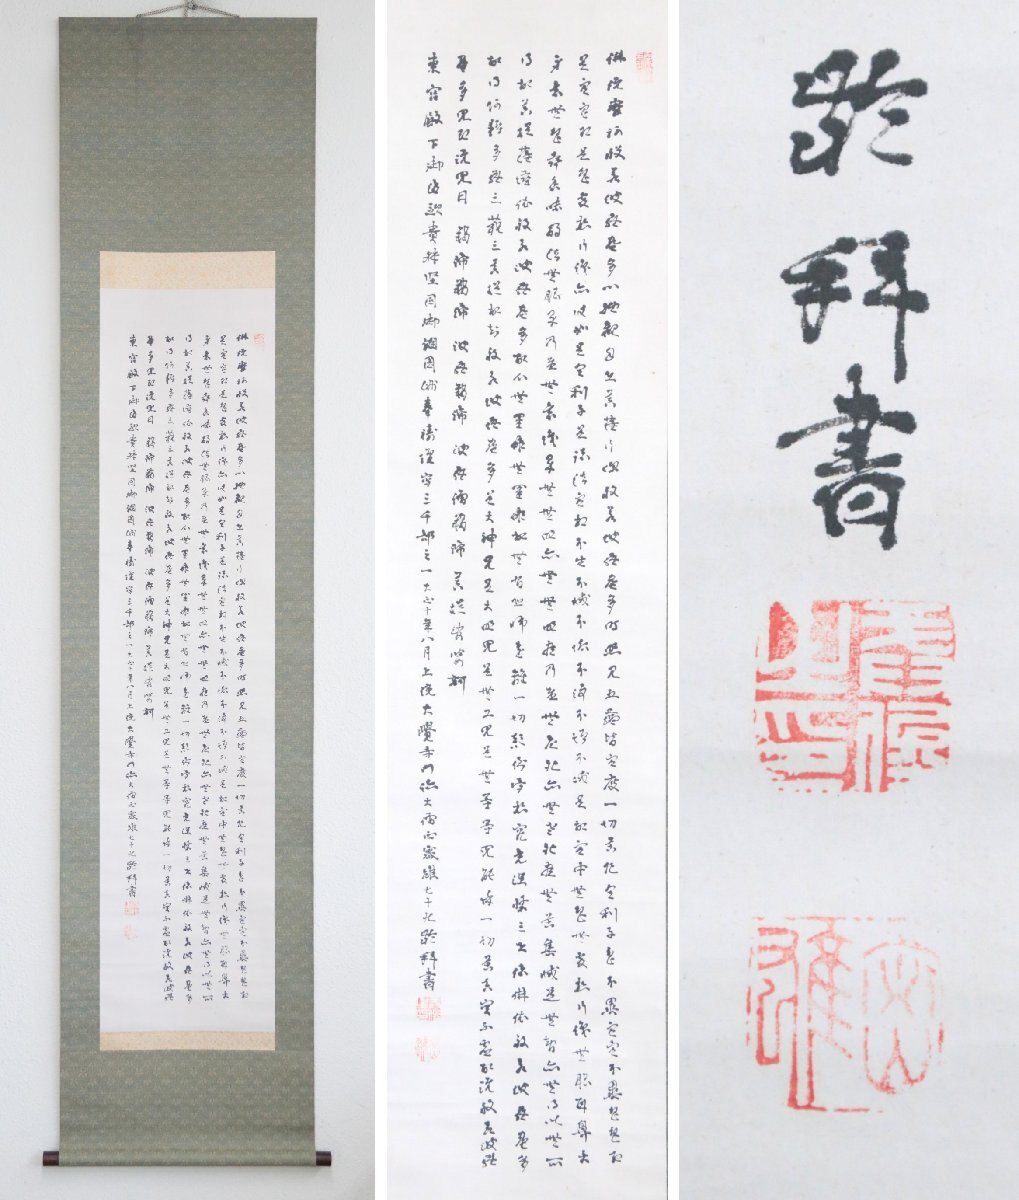 佛説摩訶般若波羅蜜多心經觀自在菩薩行深般若波羅蜜多時照見五蘊皆空度一切苦厄舍利子色不異空空不異色色即
是空空即是色受想行識亦復如是舍利子是諸法空相不生不滅不垢不淨不增不減是故空中無色無受想行識無眼耳鼻舌
身意無色聲香味觸法無眼界乃至無意識界無無明亦無無明盡乃至無老死亦無老死盡無苦集滅道無智亦無得以無所
得故菩提薩埵依般若波羅蜜多故心無罣礙無罣礙故無有恐怖遠離一切顛倒夢想究竟涅槃三世諸佛依般若波羅蜜多
故得阿耨多羅三藐三菩提故知般若波羅蜜多是大神咒是大明咒是無上咒是無等等咒能除一切苦真實不虛故説般若波羅
蜜多咒即説咒曰 羯諦羯諦 波羅羯諦 波羅僧羯諦 菩提娑婆訶
東宮殿下御渡歐堅固御圓滿奉禱謹寫三千部之一大正十年八月上浣大覺寺門跡大僧正密雄七十九齡拜書
齡拜書
密雄